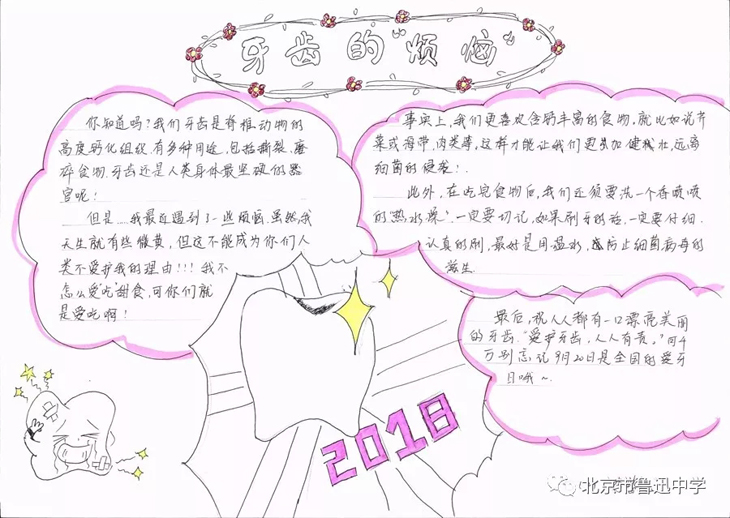 牙齿的"烦恼"
你知道吗?我们牙齿是脊椎动物的
高度钙化组织,有多种用途,包括撕裂、磨
碎食物,牙齿还是人类身体最坚硬的器
官呢!
但是……我最近遇到了一些烦恼,虽然我
天生就有些微黄,但这不能成为你们人
类不爱护我的理由!!!我不
怎么爱"吃"甜食,可你们就
是爱吃啊!
事实上,我们更喜欢含钙丰富的食物,就比如说芹
菜或海带,肉类等,这样才能让我们更加健壮,远离
细菌的侵袭!
此外,在吃完食物后,我们还须要洗一个香喷喷
的"热水澡".一定要切记,如果刷牙的话,一定要仔细.
认真的刷,最好是用温水,防止细菌病毒的
滋生.
最后,祝人人都有一口漂亮美丽
的牙齿."爱护牙齿,人人有责."可千
万别忘记9月20日是全国的爱牙
日哦~.
2018
北京市鲁迅中学